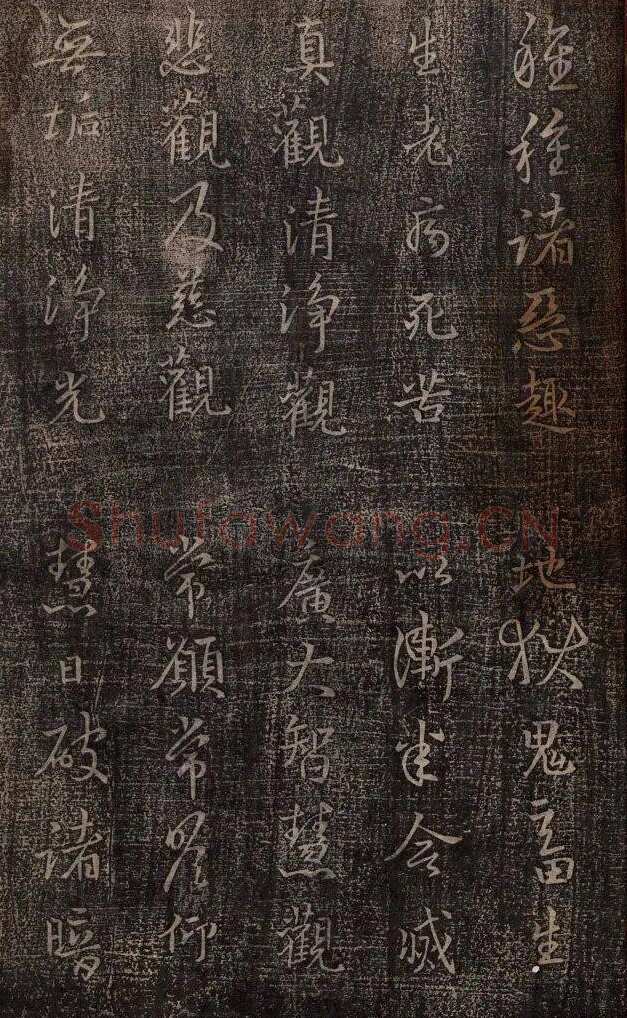 種種諸惡趣 地獄鬼畜生
生老病死苦 以漸悉令滅
真觀清淨觀 廣大智慧觀
悲觀及慈觀 常願常瞻仰
無垢清淨光 慧日破諸暗
Shufawang.CN